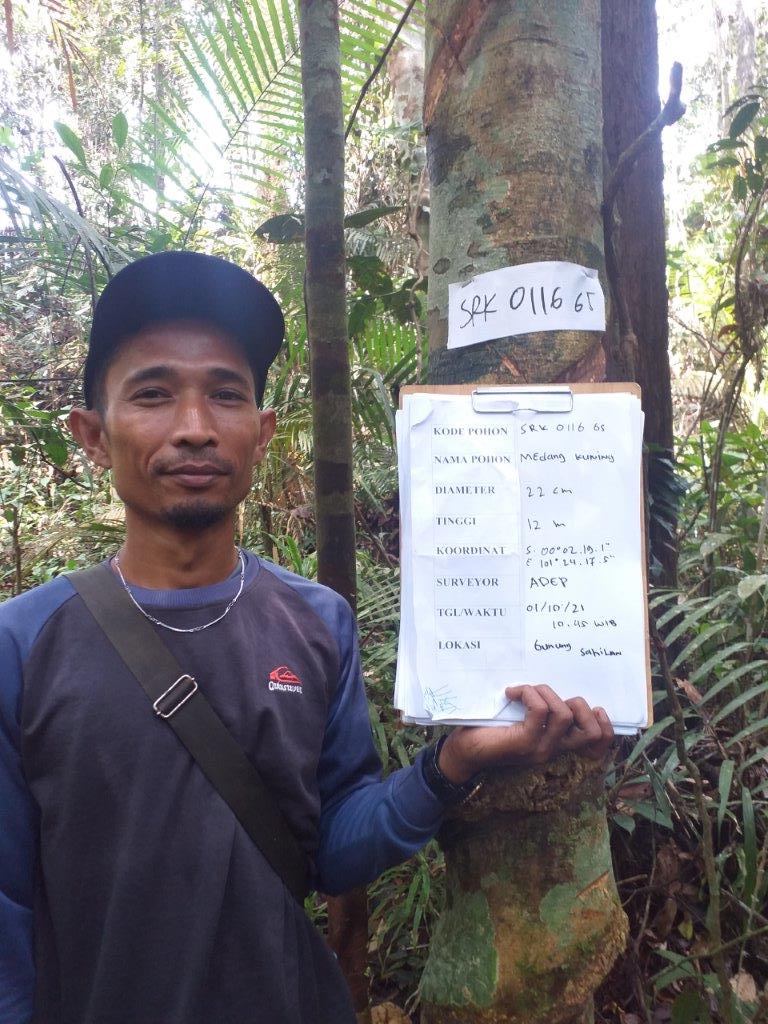 SRK 0116 65
KODE POHON SRK 0116 65
NAMA POHON MEdang Kuning
DIAMETER 22 cm
TINGGI 12 m
KOORDINAT S. 00° 02. 19. 1"
E 101° 24. 17. 5"
SURVEYOR ADEP
TGL/WAKTU 01/10/21
10.45 WIB
LOKASI Gunung Sahilan
Quiksilver